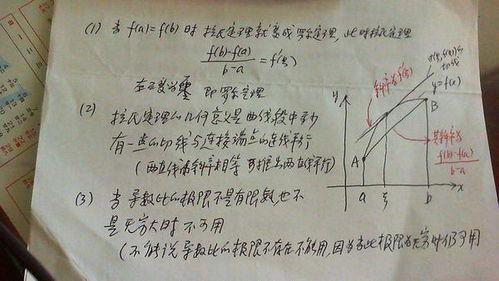 (1) 当 f(a)=f(b) 时 拉氏定理就变成罗尔定理, 此时拉氏定理
f(b)-f(a)
b-a
= f'(ξ)
左边变为零 即罗尔定理
(2) 拉氏定理的几何意义是曲线段中至少
有一点的切线与连接端点的连线平行
(两直线斜率相等 可推出两直线平行)
(3) 当导数比的极限不是有限数也不
是无穷大时 不可用
(不能说导数比的极限不存在不能用, 因为当此极限为无穷时仍可用
y
(ξ, f(ξ))
y=f(x)
斜率为f'(ξ)
A
B
其斜率为
f(b)-f(a)
b-a
a
ξ
b
x